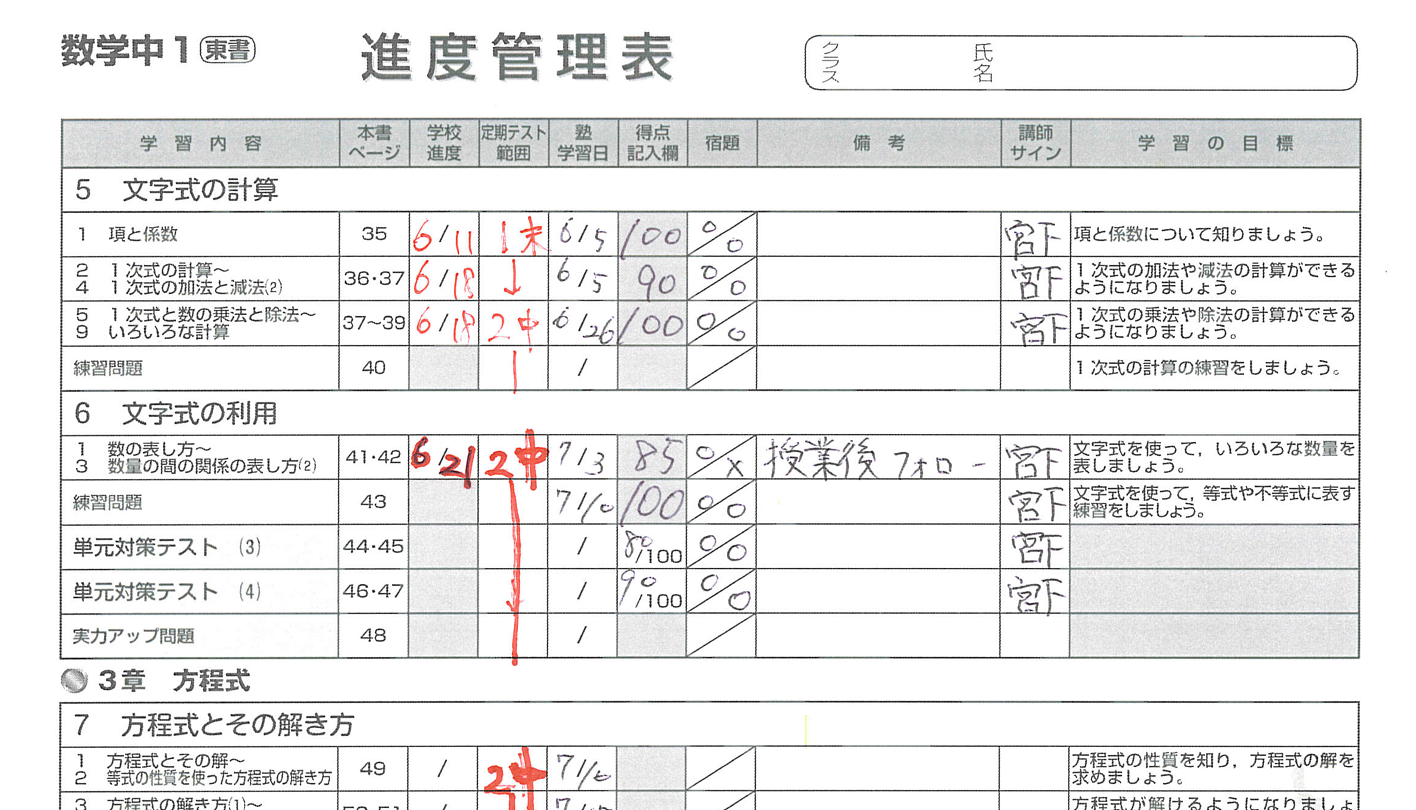 数学中1 東書 進度管理表 クラス 氏名
学習内容 本書ページ 学校進度 定期テスト範囲 塾学習日 得点記入欄 宿題 備考 講師サイン 学習の目標
5 文字式の計算
1 項と係数 35 6/11 1末 6/5 100 ○/○ 宮下 項と係数について知りましょう。
2 1次式の計算〜 36・37 6/18 ↓ 6/5 90 ○/○ 宮下 1次式の加法や減法の計算ができる
4 1次式の加法と減法(2) ようになりましょう。
5 1次式と数の乗法と除法〜 37〜39 6/18 2中 6/26 100 ○/○ 宮下 1次式の乗法や除法の計算ができる
9 いろいろな計算 ようになりましょう。
練習問題 40 / 1次式の計算の練習をしましょう。
6 文字式の利用
1 数の表し方〜 41・42 6/21 2中 7/3 85 ○/× 授業後フォロー 宮下 文字式を使って，いろいろな数量を
3 数量の間の関係の表し方(2) 表しましょう。
練習問題 43 7/10 100 ○/○ 宮下 文字式を使って，等式や不等式に表す
練習をしましょう。
単元対策テスト (3) 44・45 / 80/100 ○/○ 宮下
単元対策テスト (4) 46・47 / 90/100 ○/○ 宮下
実力アップ問題 48 /
3章 方程式
7 方程式とその解き方
1 方程式とその解〜 49 / 2中 方程式の性質を知り，方程式の解を
2 等式の性質を使った方程式の解き方 求めましょう。
3 方程式の解き方(1)〜 方程式が解けるようになりましょ